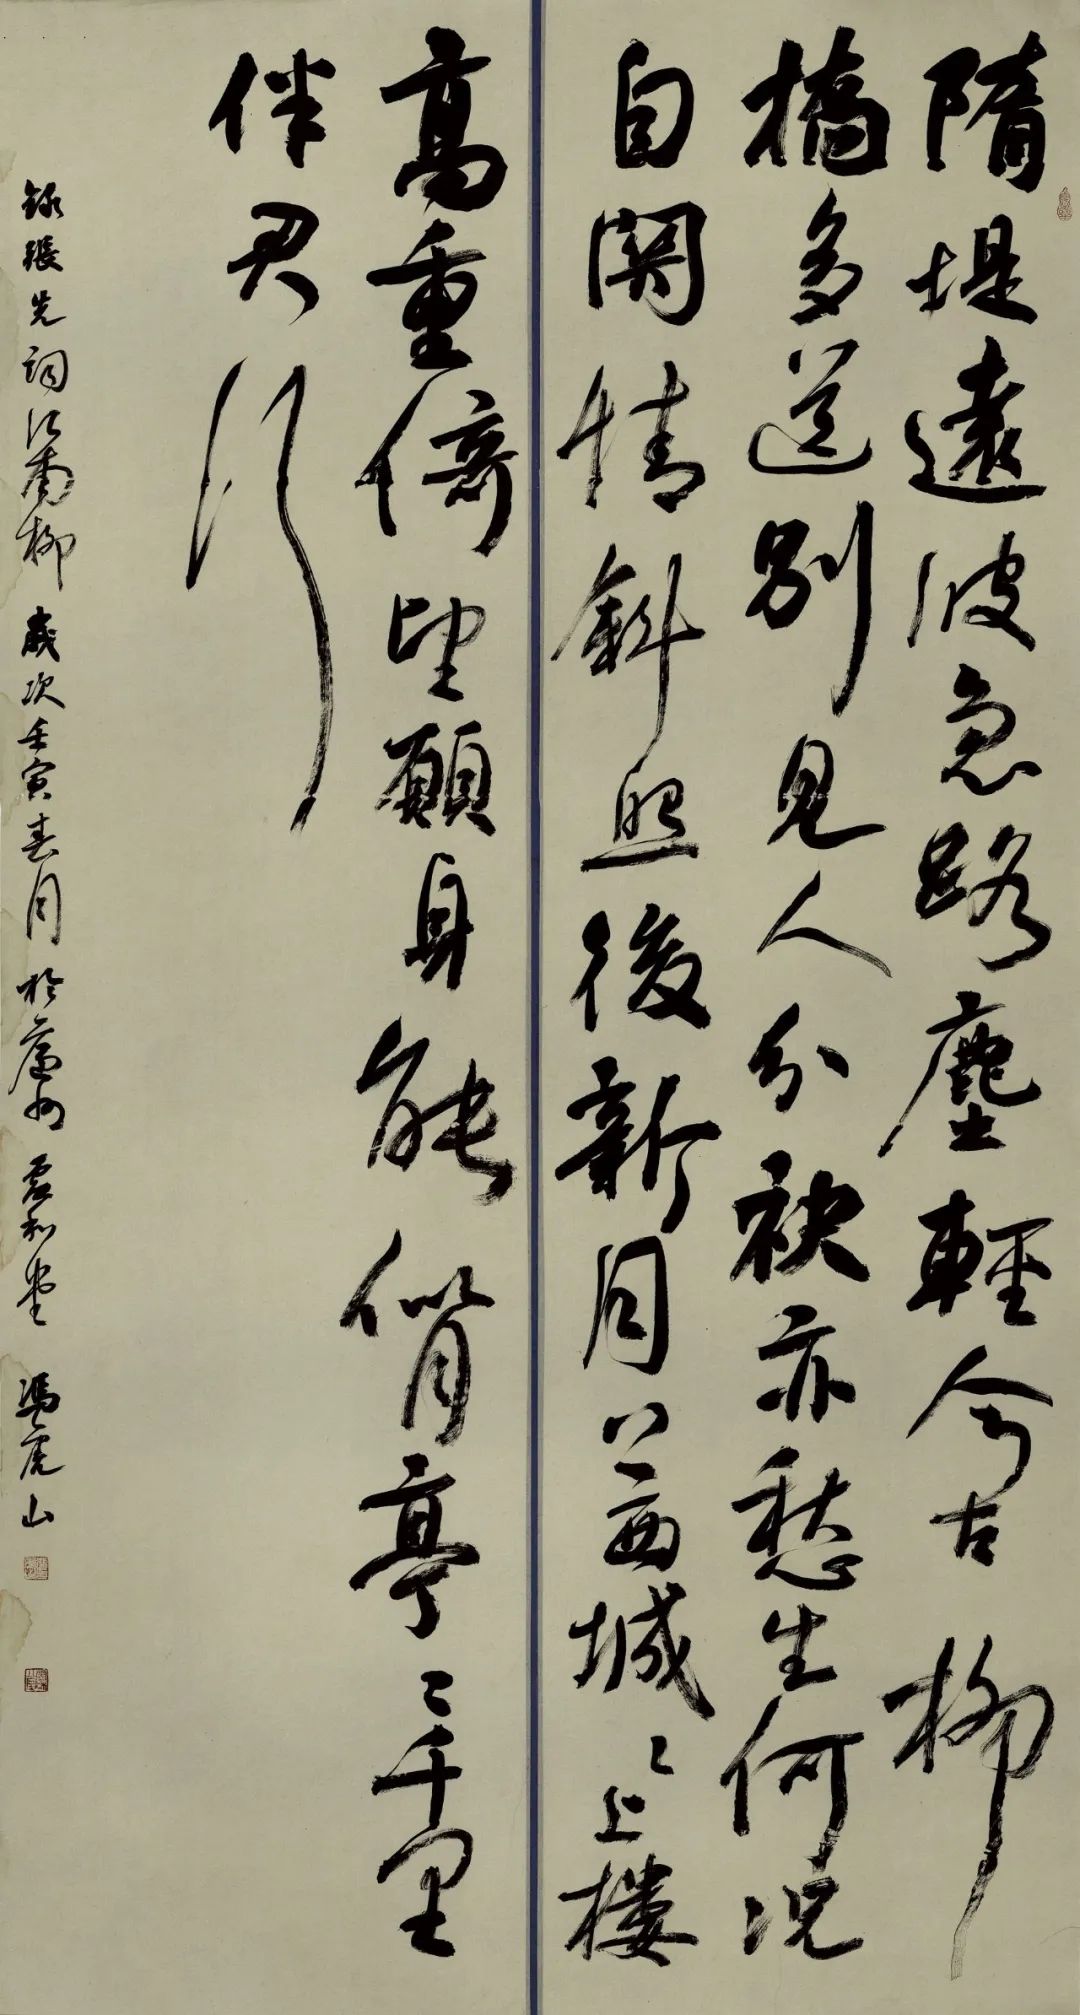 隋堤遠波急路塵輕今古柳
橋多送別見人分袂亦愁生何況
自關情斜照後新月上西城〻上樓
高重倚望願身能似月亭〻千里
伴君行
録張先詞江南柳 歲次壬寅春月於廬州 和堂 馮虎山